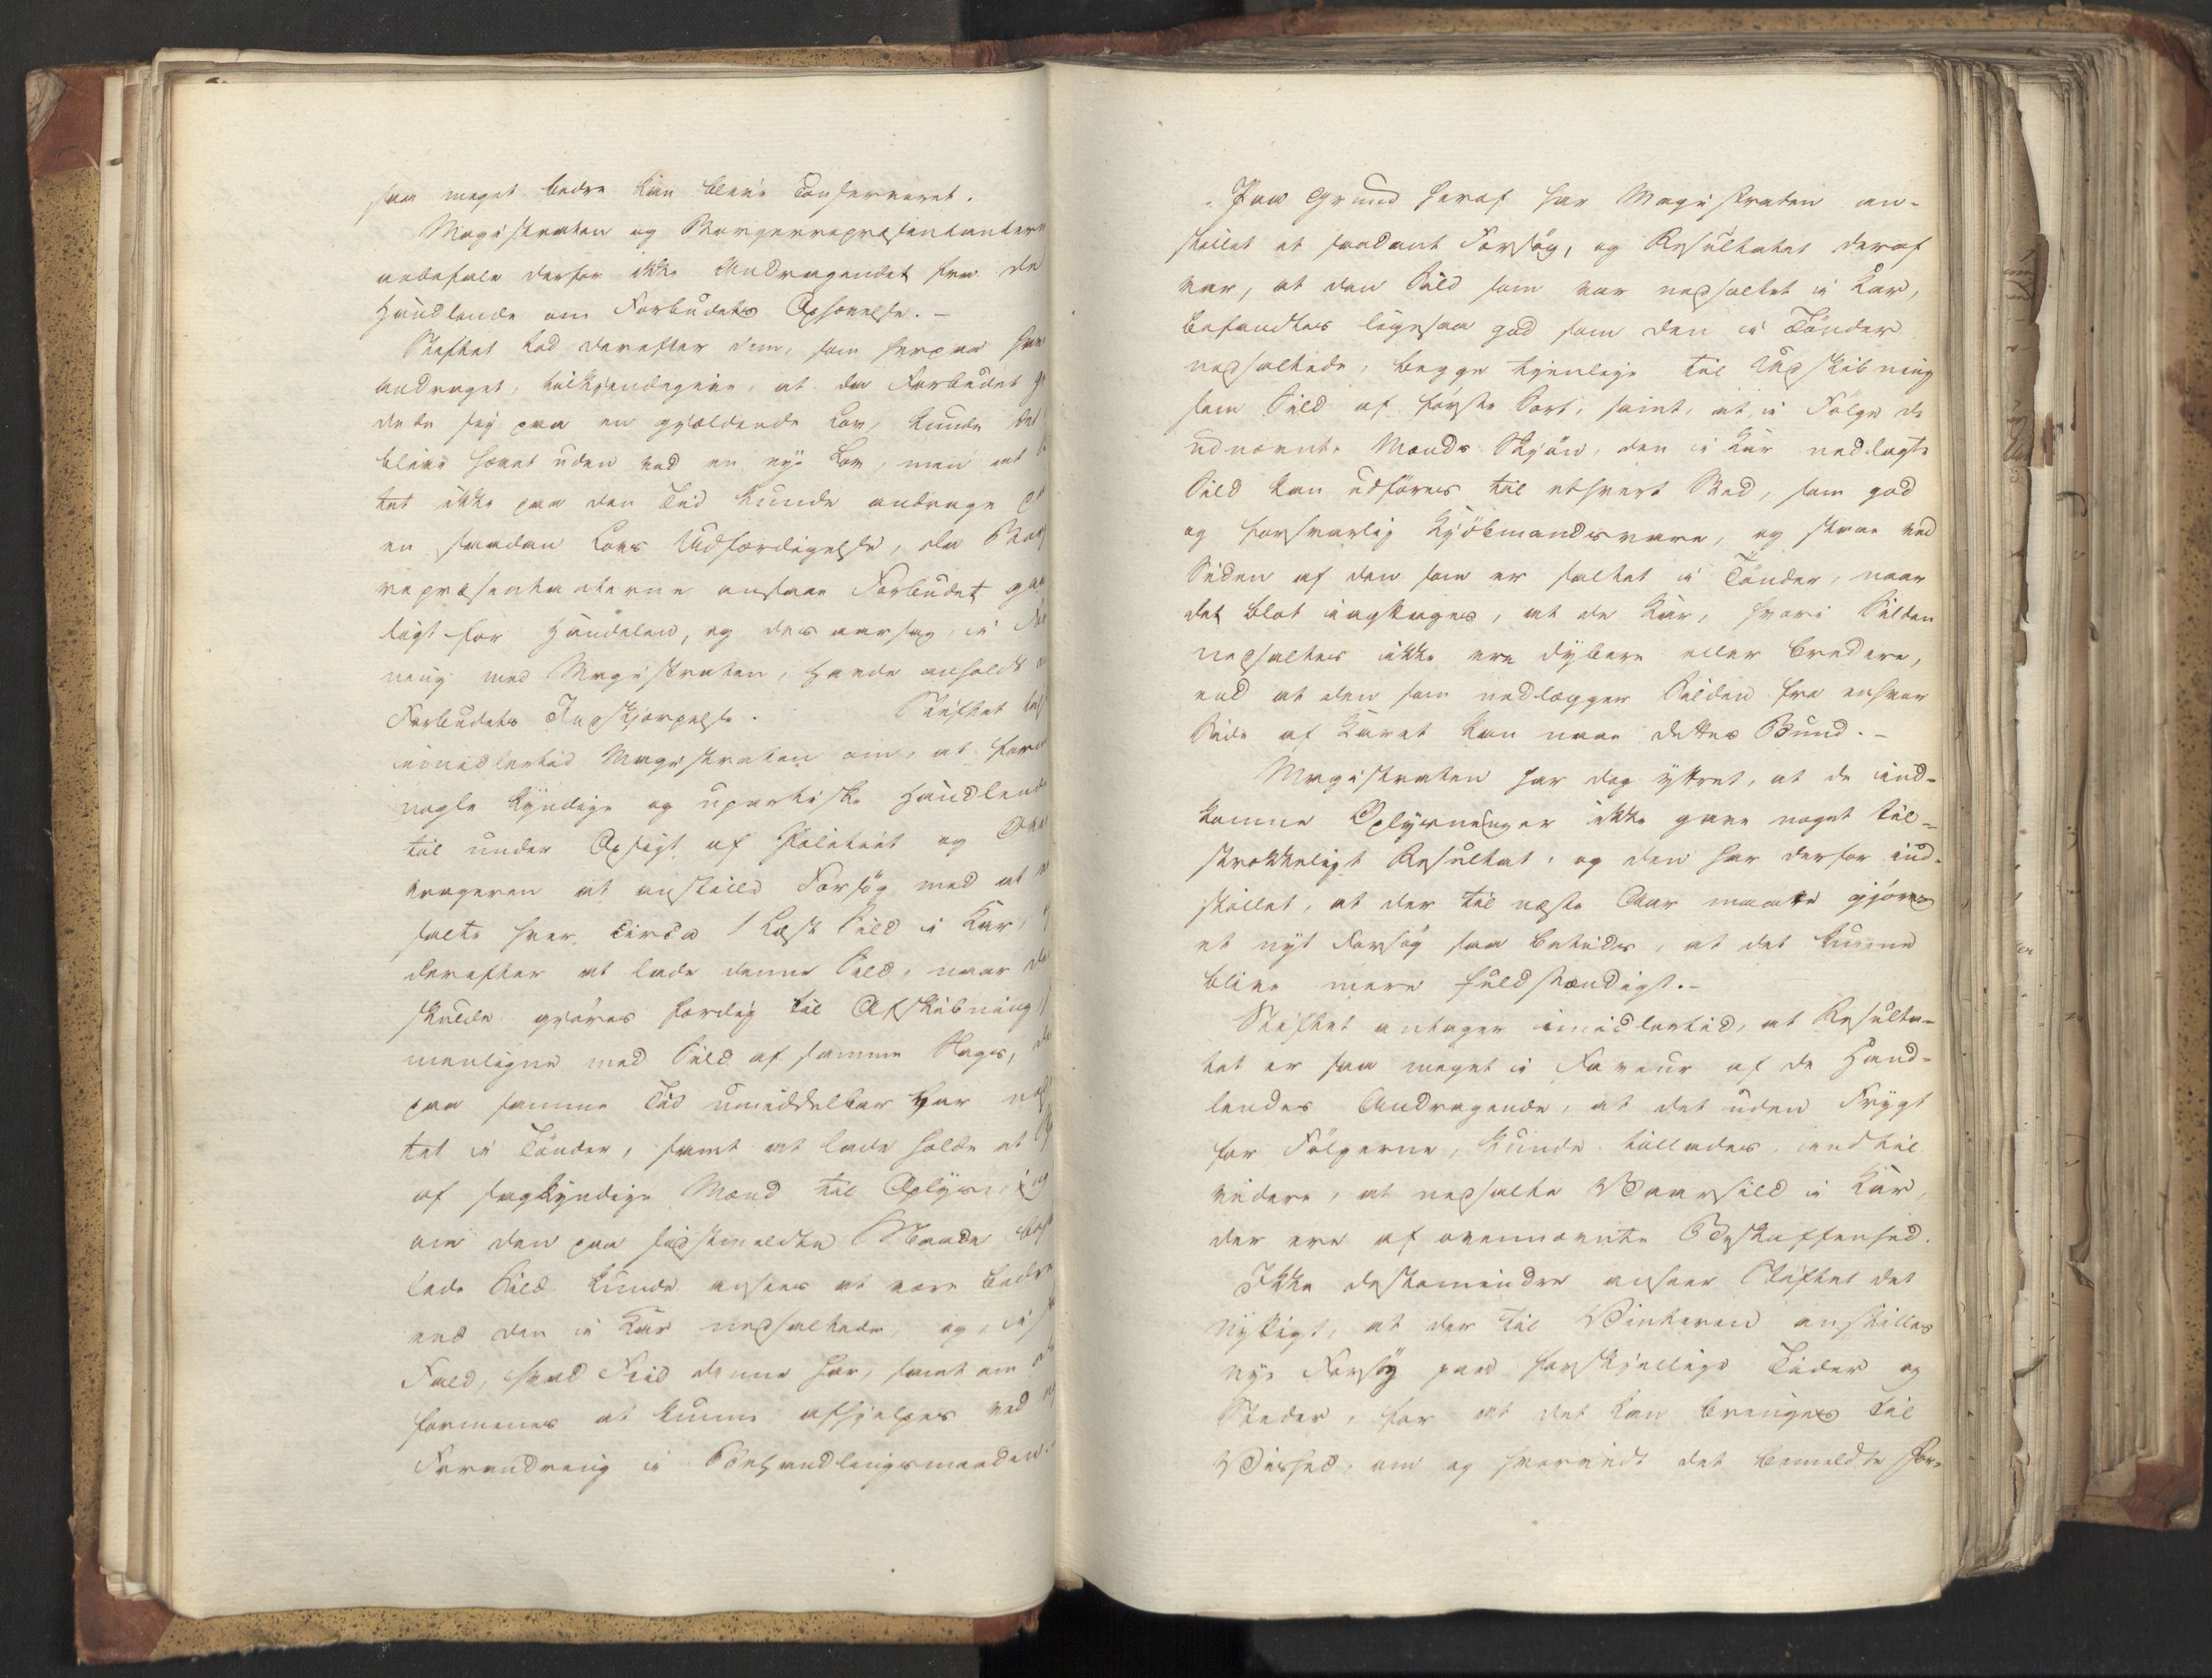 saa meget bedre kan blive conserveret.
Magistraten og Borgerrepræsentantere
anbefale derfor ikke Andragendet fra de
Handlende om Forbudets Ophævelse. –
Stiftet lod derefter dem, som herpaa hav
andraget, tilkjendegive, at da Forbudet g
dede sig paa en gjældende Lov, kunde det
blive hævet uden ved en nye Lov, men at
tet ikke paa den Tid kunde andrage p
en saadan Lovs Udfærdigelse, da Borg
repræsentanterne ansaae Forbudet ga
ligt for Handelen, og desaarsag, i For
ning med Magistraten, havde anholdt o
Forbudets Indskjærpelse. Stiftet
imidlertid Magistraten om, at
nogle kyndige og upartiske Handlende
til under Opsigt af Politiet og
vrageren at anstille Forsøg med at
salte hver circa 1 Læst Sild i Kar,
derefter at lade denne Sild, naar de
skulde gjøres færdig til Afskibning
menligne med Sild af samme Slags,
paa samme Tid umiddelbar har
tet i Tønder, samt at lade holde et
af sagkyndige Mænd til Oplysning
om den paa sidstmeldte Maade
lede Sild kunde ansees at være bedre
end den i Kar nedsaltede, og, i
Fald, hvad Feil denne har, samt om
formenes at kunne afhjelpes ved
Forandring i Behandlingsmaaden.
Paa Grund heraf har Magistraten an-
stillet et saadant Forsøg, og Resultatet deraf
var, at den Sild som var nedsaltet i Kar,
befandtes ligesaa god som den i Tønder
nedsaltede, begge tjenlige til Udskibning
som Sild af første Sort, samt, at, i Følge de
udnævnte Mænds Skjøn, den i Kar nedlagte
Sild kan udføres til ethvert Sted, som god
og forsvarlig Kjøbmandsvare, og staae ved
Siden af den som er saltet i Tønder, naar
det blot iagttages, at de Kar, hvori Silden
nedsaltes ikke ere dybere eller bredere,
end at den som nedlægger Silden fra enhver
Side af Karet kan naae dettes Bund. –
Magistraten har dog yttret, at de ind-
komne Oplysninger ikke gave noget til-
strækkeligt Resultat, og den har derfor ind-
stillet, at der til næste Aar maatte gjøres
et nyt Forsøg saa betids, at det kunne
blive mere fuldstændigt. –
Stiftet antager imidlertid, at Resulta-
tet er saa meget i Faveur af de Hand-
lendes Andragende, at det uden Frygt
for Følgerne, kunde tillades, indtil
videre, at nedsalte Vaarsild i Kar,
der ere af ovennævnte Beskaffenhed.
Ikke destomindre anseer Stiftet det
nyttigt, at der til Vinteren anstilles
nye Forsøg paa forskjellige Tider og
Steder, for at det kan bringes til
Vished, om og hvorvidt det bemeldte For-